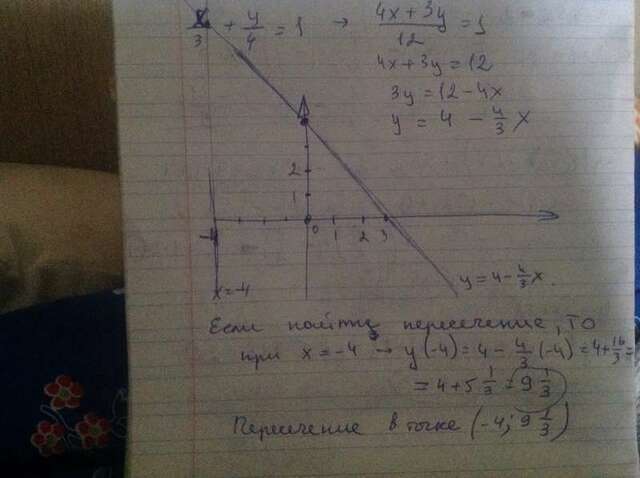 x/3 + y/4 = 1 → (4x + 3y)/12 = 1
4x + 3y = 12
3y = 12 - 4x
y = 4 - 4/3 x
2
1
0 1 2 3
-4
x = -4
y = 4 - 4/3 x.
Если найти пересечение, то
при x = -4 → y(-4) = 4 - 4/3 (-4) = 4 + 16/3 =
= 4 + 5 1/3 = 9 1/3
Пересечение в точке (-4; 9 1/3)